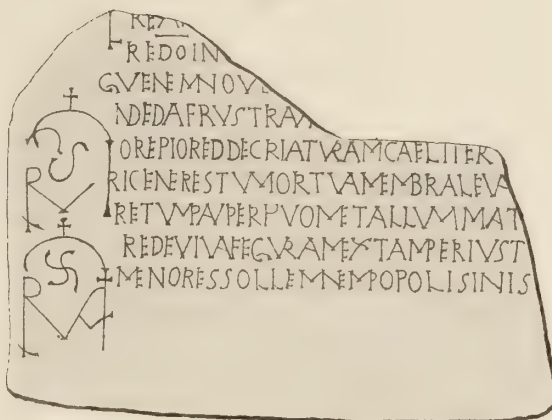 REDOIN
NDEDAFRVSTRA
OREPIOREDDECRIATVRAMCAELITER
RICENERESTVMORTVAMEMBRALEVA
RETVMPAVPERPVOMETALLVMMAT
REDEVIVAFEGVRAMEXTAMPERIVST
MENORESSOLLEMNEMPOPOLISINIS